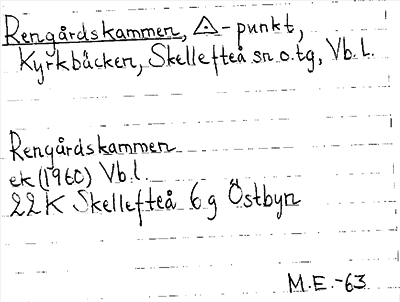 Rengårdskammen, △-punkt,
Kyrkbäcken, Skellefteå sn.o.tg, Vb.l.
Rengårdskammen
ek(1960) Vb.l.
22K Skellefteå 6g Östbyn
M.E.-63